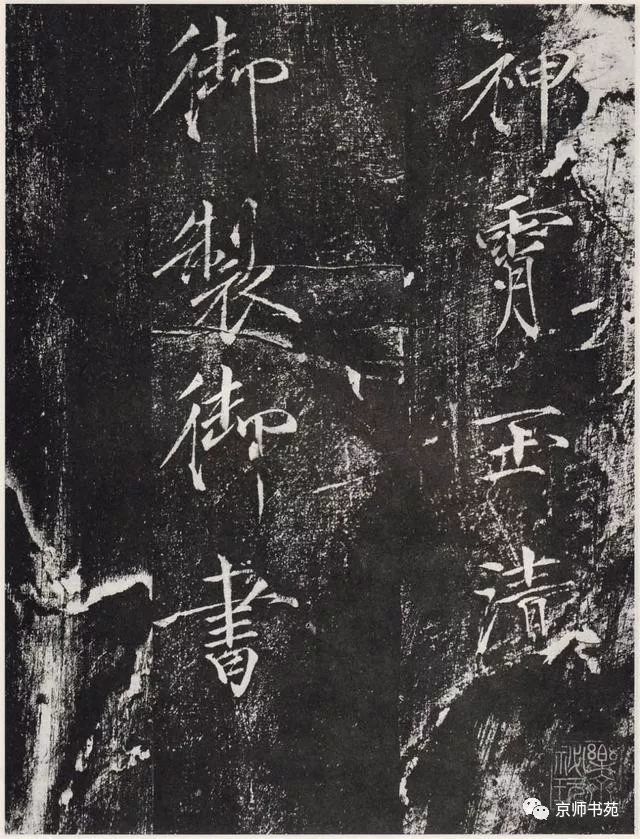 神霄玉清
御製御書
京师书苑